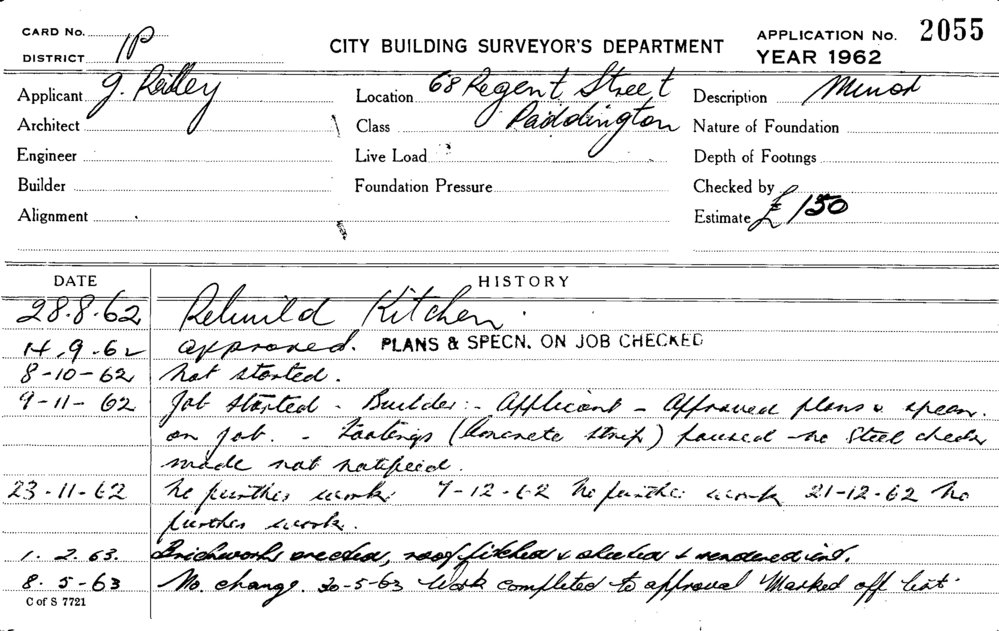 CARD No.
DISTRICT 1P
CITY BUILDING SURVEYOR'S DEPARTMENT
APPLICATION No. 2055
YEAR 1962
Applicant J. Reilley
Location 68 Regent Street
Description Minor
Architect
Class Paddington
Nature of Foundation
Engineer
Live Load
Depth of Footings
Builder
Foundation Pressure
Checked by
Alignment
Estimate £150
DATE HISTORY
28.8.62 Rebuild Kitchen.
14.9.62 approved. PLANS & SPECN. ON JOB CHECKED
8-10-62 Not started.
9-11-62 Job started - Builder:- Applicant - Approved plans & specn.
on job. - Footings (Concrete strip) poured - no steel check
made not notified.
23-11-62 No further work. 7-12-62 No further work 21-12-62 No
further work.
1. 2. 63. Brickwork erected, roof pitched & sheeted & rendered int.
8. 5-63 No. change. 30-5-63 Work completed to approval Marked off list.
C of S 7721